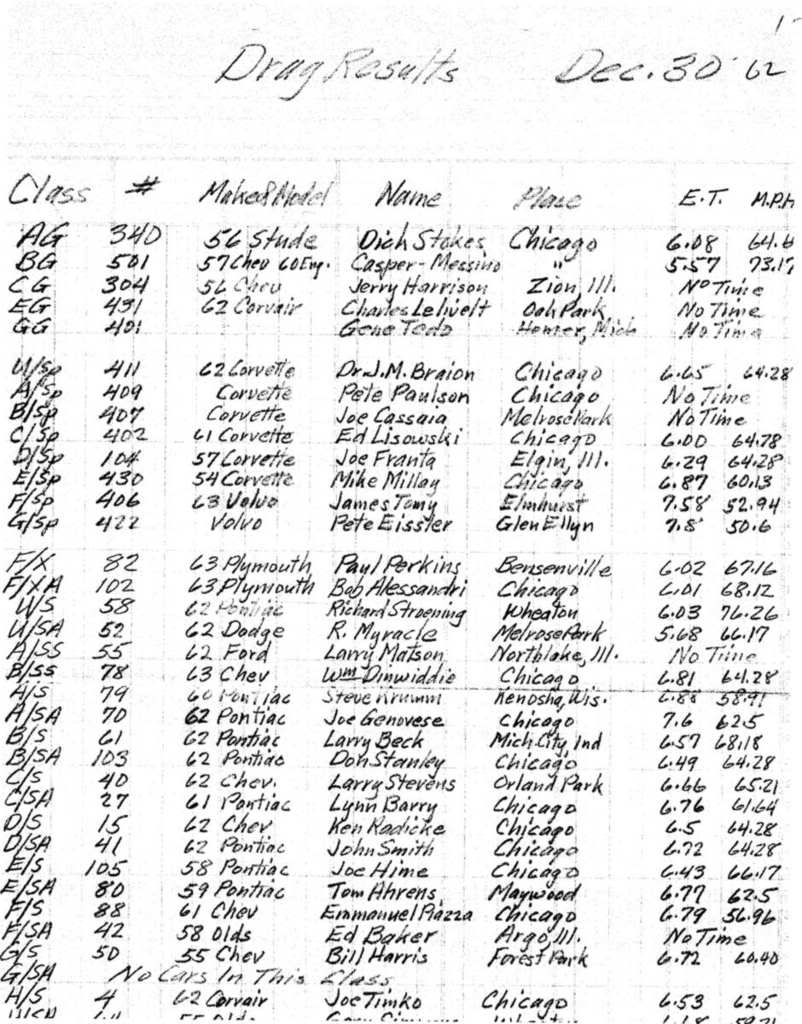 Drag Results Dec. 30 '62
Class # Make & Model Name Place E.T. M.P.H
AG 340 56 Stude Dick Stakes Chicago 6.08 64.6
BG 501 57 Chev 60 Eng. Casper-Messino " 5.57 73.17
CG 304 56 Chev Jerry Harrison Zion, Ill. No Time
EG 431 62 Corvair Charles Lelivelt Oak Park No Time
GG 401 Gene Mich No Time
U/Sp 411 62 Corvette Dr. J.M. Braion Chicago 6.65 64.28
A/Sp 409 Corvette Pete Paulson Chicago No Time
B/Sp 407 Corvette Joe Cassaia Melrose Park No Time
C/Sp 402 61 Corvette Ed Lisowski Chicago 6.00 64.78
D/Sp 104 57 Corvette Joe Franta Elgin, Ill. 6.29 64.28
E/Sp 430 54 Corvette Mike Millay Chicago 6.87 60.13
F/Sp 406 63 Volvo James Tomy Elmhurst 7.58 52.94
G/Sp 422 Volvo Pete Eissler Glen Ellyn 7.8 50.6
F/X 82 63 Plymouth Paul Perkins Bensenville 6.02 67.16
F/XA 102 63 Plymouth Bob Alessandri Chicago 6.01 68.12
U/S 58 62 Pontiac Richard Stroening Wheaton 6.03 76.26
U/SA 52 62 Dodge R. Myracle Melrose Park 5.68 66.17
A/SS 55 62 Ford Larry Matson Northlake, Ill. No Time
B/SS 78 63 Chev Wm Dinwiddie Chicago 6.81 64.28
A/S 79 60 Pontiac Steve Krumm Kenosha, Wis. 6.88 58.91
A/SA 70 62 Pontiac Joe Genovese Chicago 7.6 62.5
B/S 61 62 Pontiac Larry Beck Mich City, Ind 6.57 68.18
B/SA 103 62 Pontiac Don Stanley Chicago 6.49 64.28
C/S 40 62 Chev. Larry Stevens Orland Park 6.66 65.21
C/SA 27 61 Pontiac Lynn Barry Chicago 6.76 61.64
D/S 15 62 Chev Ken Radicke Chicago 6.5 64.28
D/SA 41 62 Pontiac John Smith Chicago 6.72 64.28
E/S 105 58 Pontiac Joe Hime Chicago 6.43 66.17
E/SA 80 59 Pontiac Tom Ahrens Maywood 6.77 62.5
F/S 88 61 Chev Emmanuel Piazza Chicago 6.79 56.96
F/SA 42 58 Olds Ed Baker Argo, Ill. No Time
G/S 50 55 Chev Bill Harris Forest Park 6.72 60.40
G/SA No Cars In This Class
H/S 4 62 Corvair Joe Timko Chicago 6.53 62.5